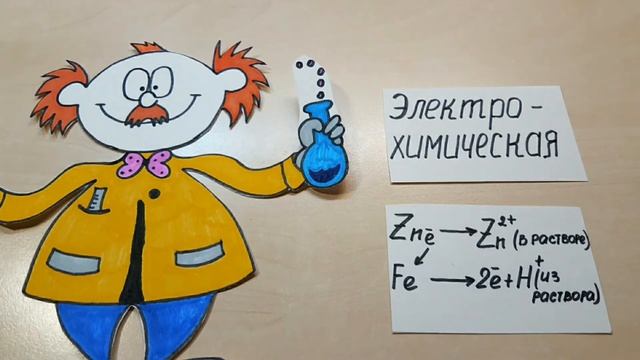 Электро-
химическая
Znē → Zn²⁺ (в растворе)
Fe → 2ē + H⁺ (из
раствора)